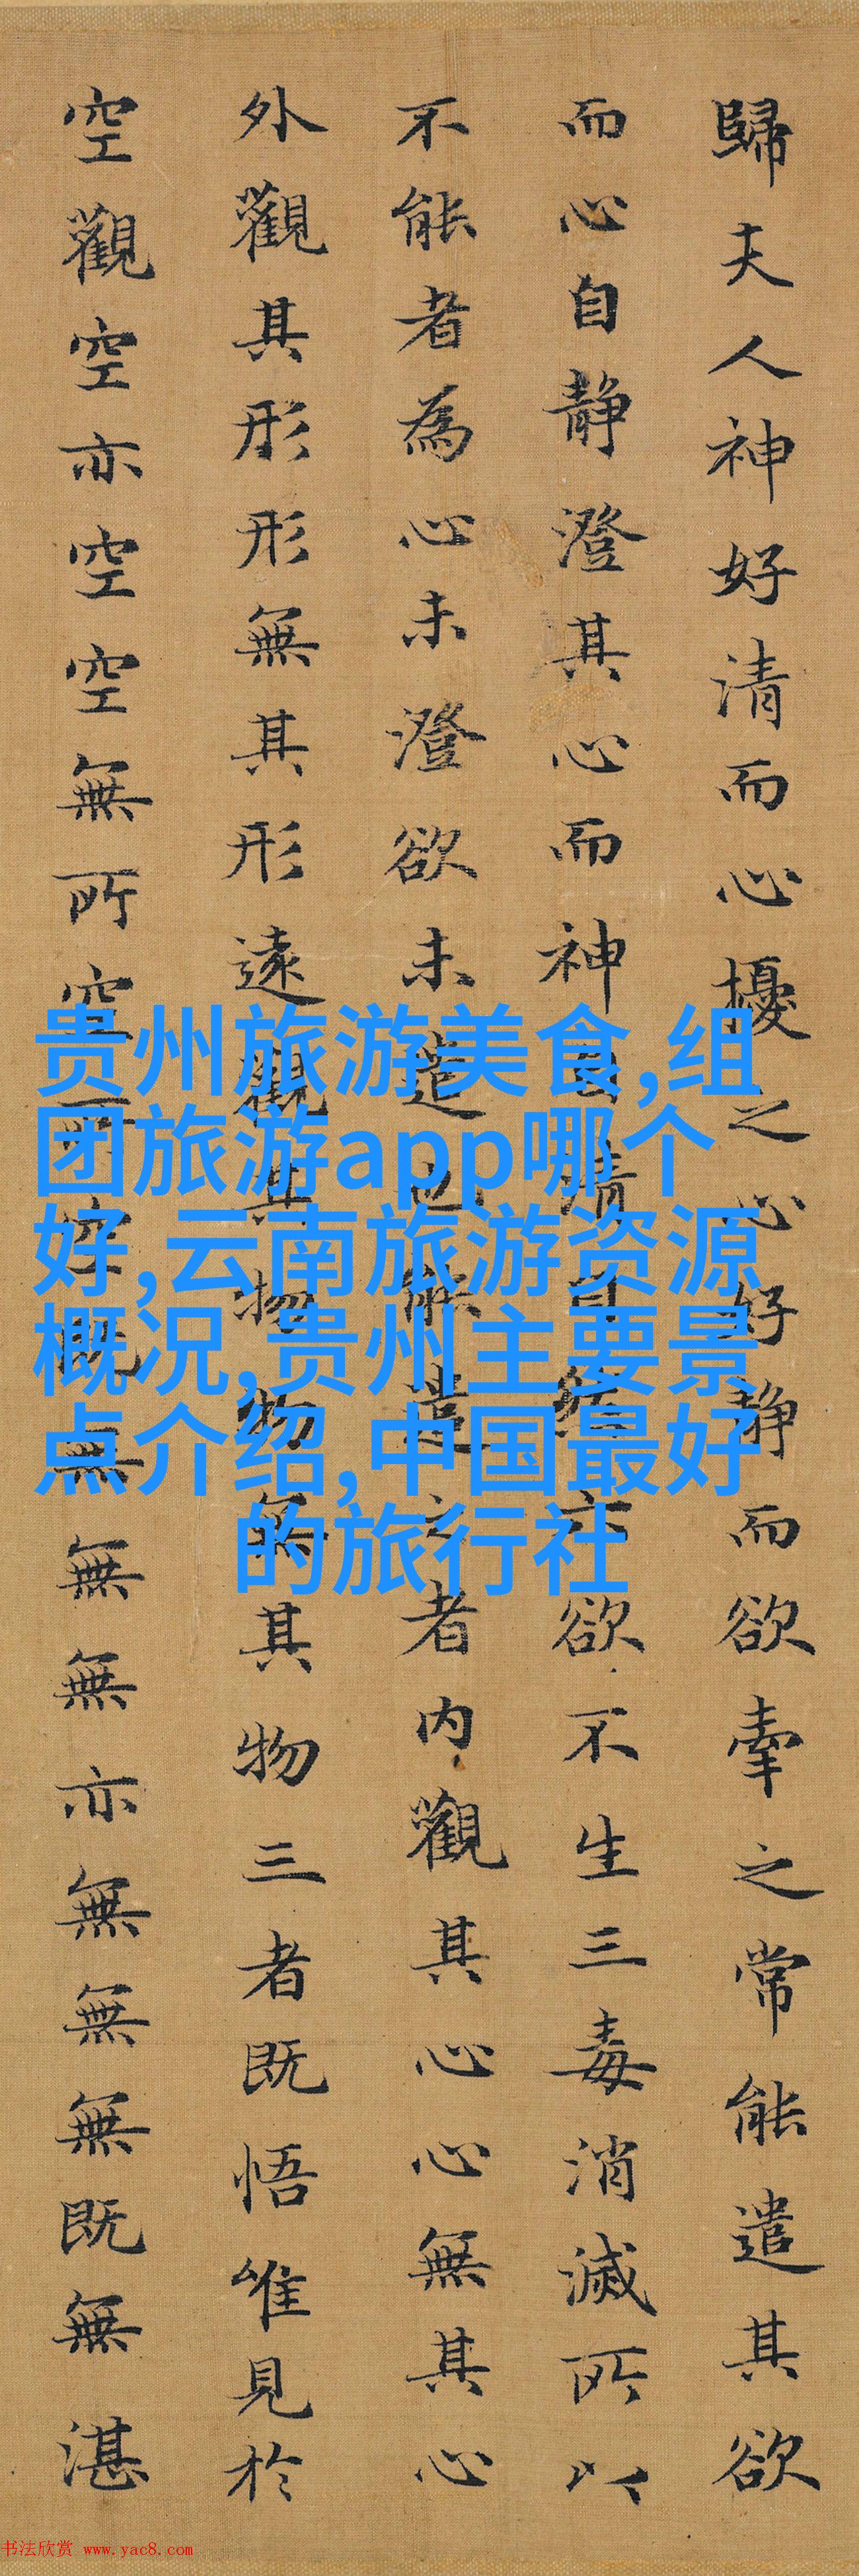 歸夫人神好清而心擾之心好静而欲牽之常能遣其欲
而心自静澄其心而神自清自然六欲不生三毒消滅所以
不能者為心未澄欲未遣也能遣之者内觀其心心無其心
外觀其形形無其形遠觀其物物無其物三者既悟唯見於
空觀空亦空空無所空所空既無無無亦無無無既無湛
贵州旅游美食,组
团旅游app哪个
好,云南旅游资源
概况,贵州主要景
点介绍,中国最好
的旅行社
书法欣赏 www.yac8.com